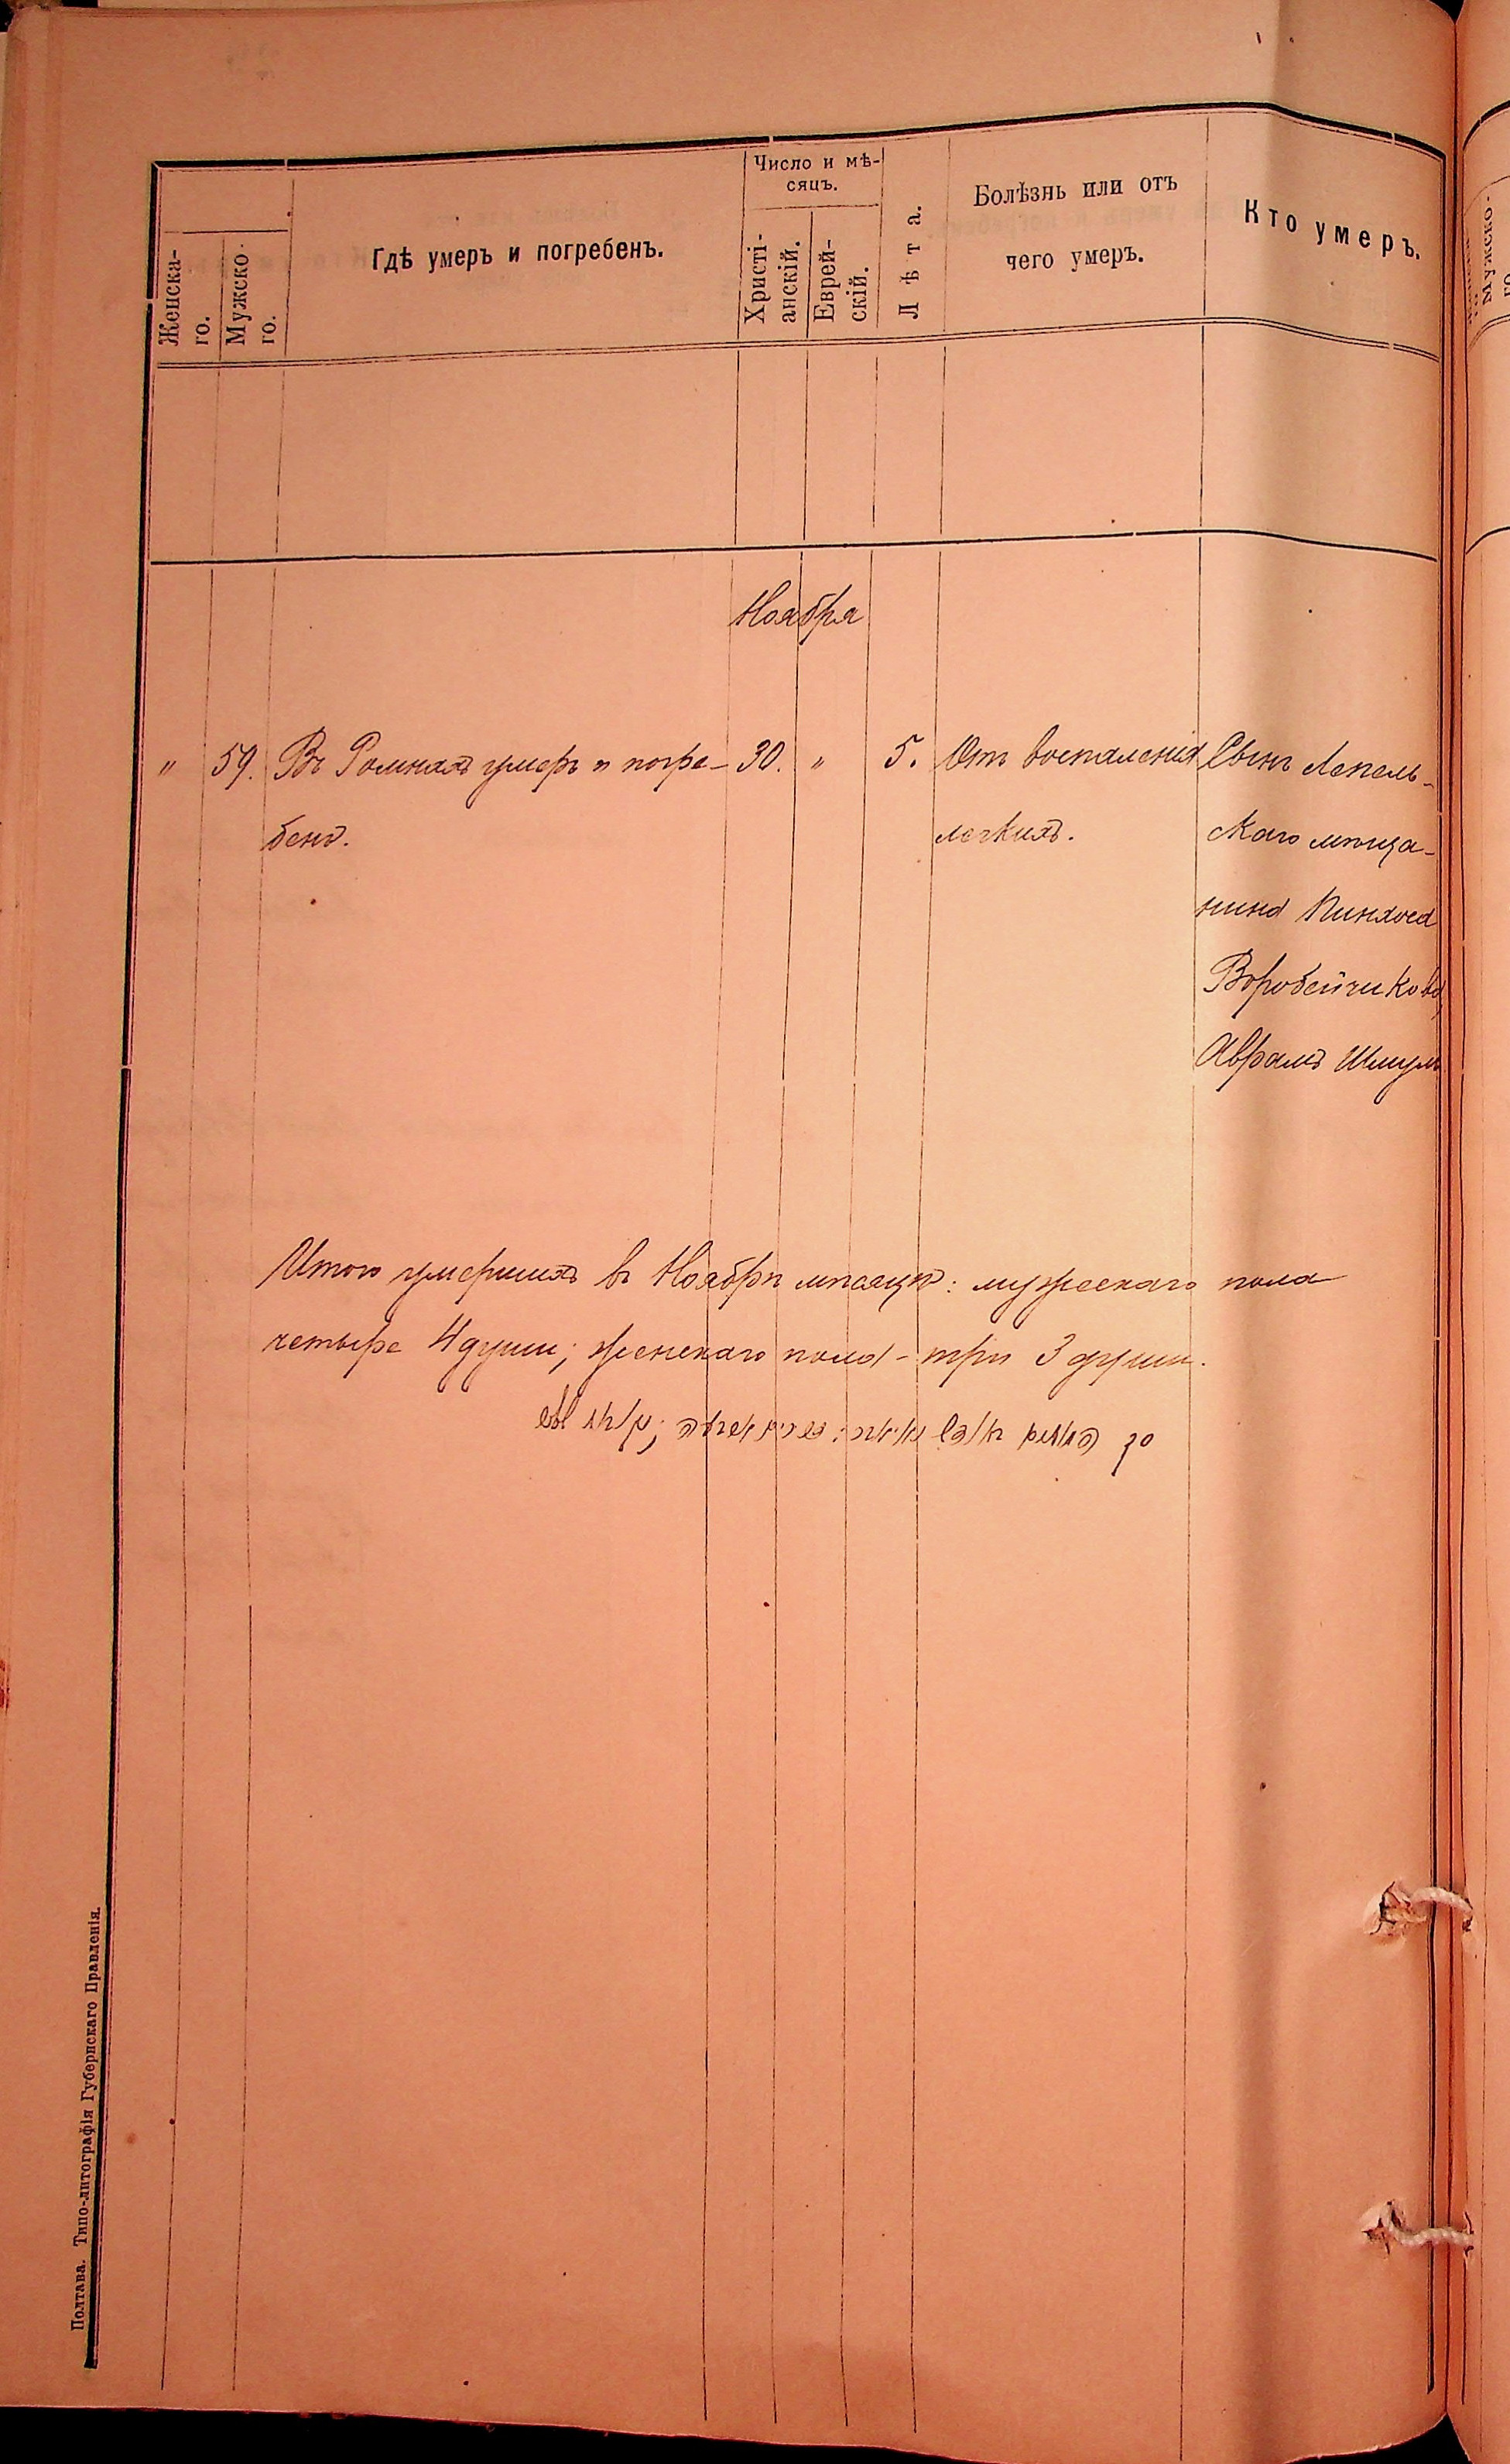 Женска-
го.
Мужско-
го.
Гдѣ умеръ и погребенъ.
Число и мѣ-
сяцъ.
Христі-
анскій.
Еврей-
скій.
Лѣта.
Болѣзнь или отъ
чего умеръ.
Кто умеръ.
Ноября
" 59. Въ Ромнахъ умеръ и погре- 30. " 5. Отъ воспаленія Сынъ Лепель-
бенъ. легкихъ. скаго мѣща-
нина Пинхоса
Воробейчикова,
Аврамъ Шмуль
Итого умершихъ въ Ноябрѣ мѣсяцѣ: мужескаго пола
четыре 4 души; женскаго пола - три 3 души.
Полтава. Типо-литографія Губернскаго Правленія.
Мужско-
го